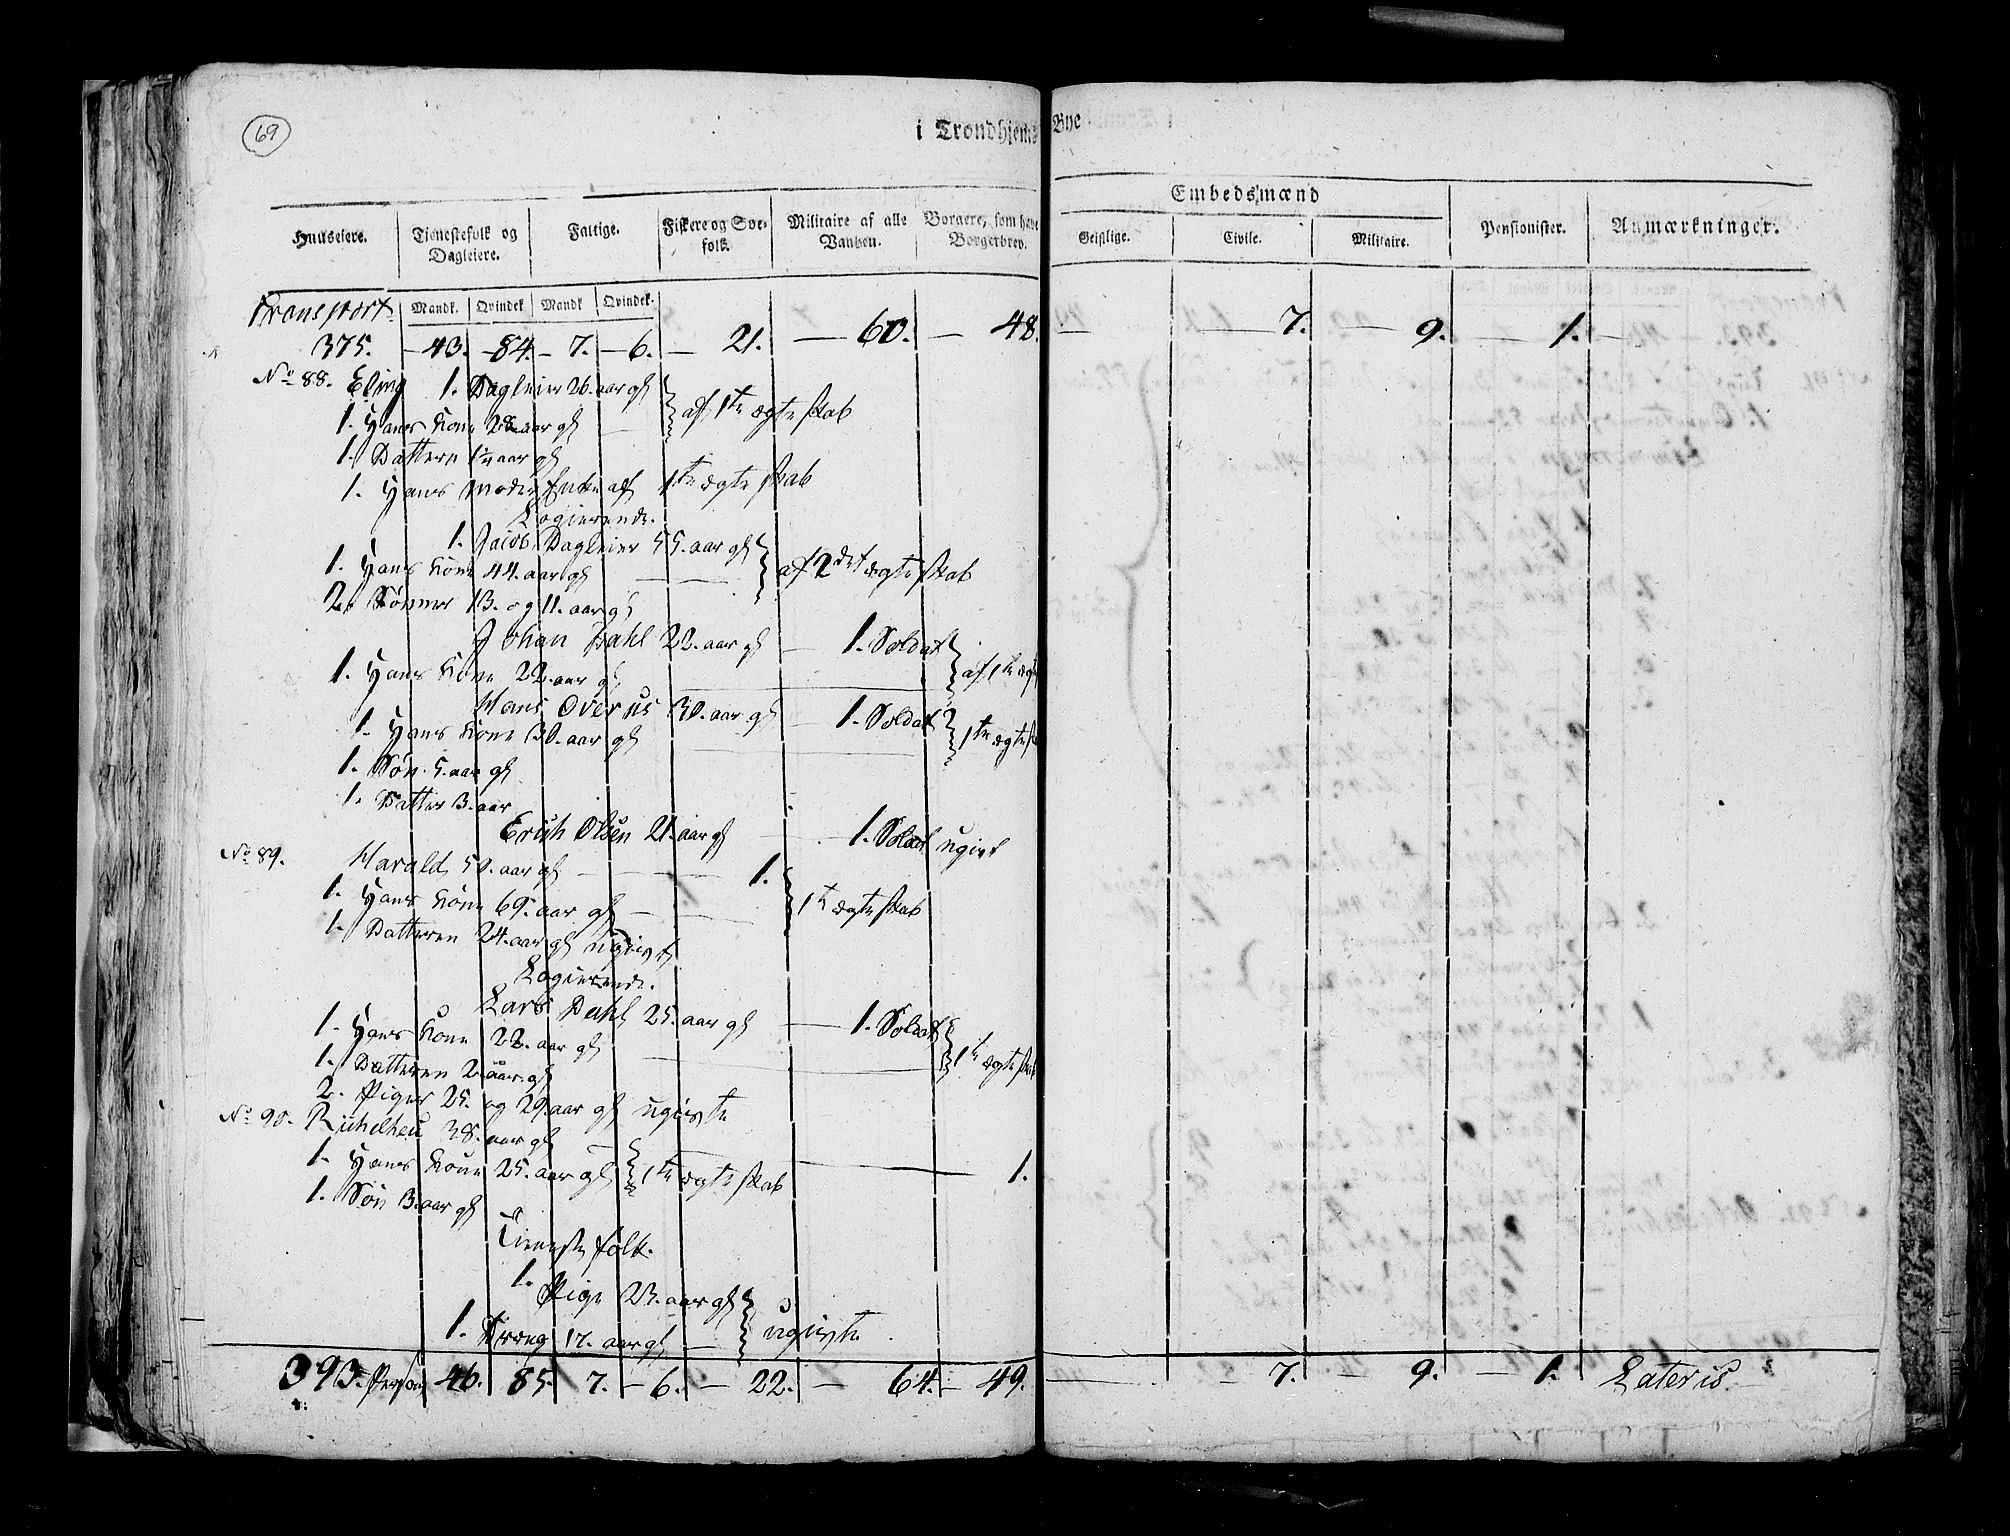 69
i Trondhjems Bye
Embedsmænd
Huuseiere. Tienestefolk og Dagleiere. Fattige. Fiskere og Søefolk. Militaire af alle Vaaben. Borgere, som have Borgerbrev. Geistlige. Civile. Militaire. Pensionister. Anmærkninger.
Mandk. Qvindek Mandk Qvindek.
Transport
375. 43. 84. 7. 6. 21. 60. 48. 7. 9. 1.
No 88. Eling 1. Dagleier 26. aar gl
1. Hans Kone 28 aar gl af 1te ægteskab
1. Datteren 1 aar gl
1. Hans Moder Enke af 1te ægteskab
Logierende.
1. Jacob Dagleier 55. aar gl
1. Hans Kone 44. aar gl af 2det ægteskab
2. Sønner 13. og 11. aar gl
Johan Dahl 22. aar gl 1. Soldat
1. Hans Kone 22. aar gl af 1te
Hans Overus 30. aar gl 1. Soldat
1. Hans Kone 30. aar gl 1te
1. Søn 5. aar gl
1. Datter 3. aar
Erich Olsen 21. aar gl 1. Soldat ugivt
No 89. Harald 50. aar gl 1.
1. Hans Kone 69. aar gl 1te ægteskab
1. Datteren 24. aar gl ugivt
Logierende.
Lars Dahl 25. aar gl 1. Soldat
1. Hans Kone 22. aar gl 1te ægteskab
1. Datteren 2 aar gl
2. Piger 25. og 29. aar gl ugivte
No 90. 38. aar gl
1. Hans Kone 25. aar gl 1te ægteskab 1.
1. Søn 3. aar gl
Tienestefolk.
1. Pige 23. aar gl
1. Dreng 17. aar gl ugivte
393. Person 46. 85. 7. 6. 22. 64. 49. 7. 9. 1. Lateris